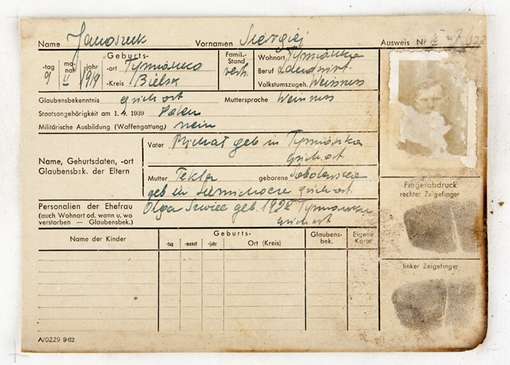 Name Janoszuk Vornamen Siergiej Ausweis Nr
Geburts-
tag monat jahr -ort Tymianka
9 II 1919 -Kreis Bielsk
Famil.-
Stand
verh.
Wohnort Tymianka
Beruf Landwirt
Volkstumszugeh. Weissruss
Glaubensbekenntnis griech ort Muttersprache Weissruss
Staatsangehörigkeit am 1. 9. 1939 Polen
Militärische Ausbildung (Waffengattung) nein
Name, Geburtsdaten, -ort
Glaubensbek. der Eltern
Vater Michał geb in Tymianka
griech ort
Mutter Tekla geborene
geb in griech ort
Personalien der Ehefrau
(auch Wohnort od. wann u. wo
verstorben — Glaubensbek.)
Olga geb 192 Tymianka
griech ort
Name der Kinder
Geburts-
-tag -monat -jahr Ort (Kreis)
Glaubens-
bek.
Eigene
Karte
Fingerabdruck
rechter Zeigefinger
linker Zeigefinger
A/0229 9/42